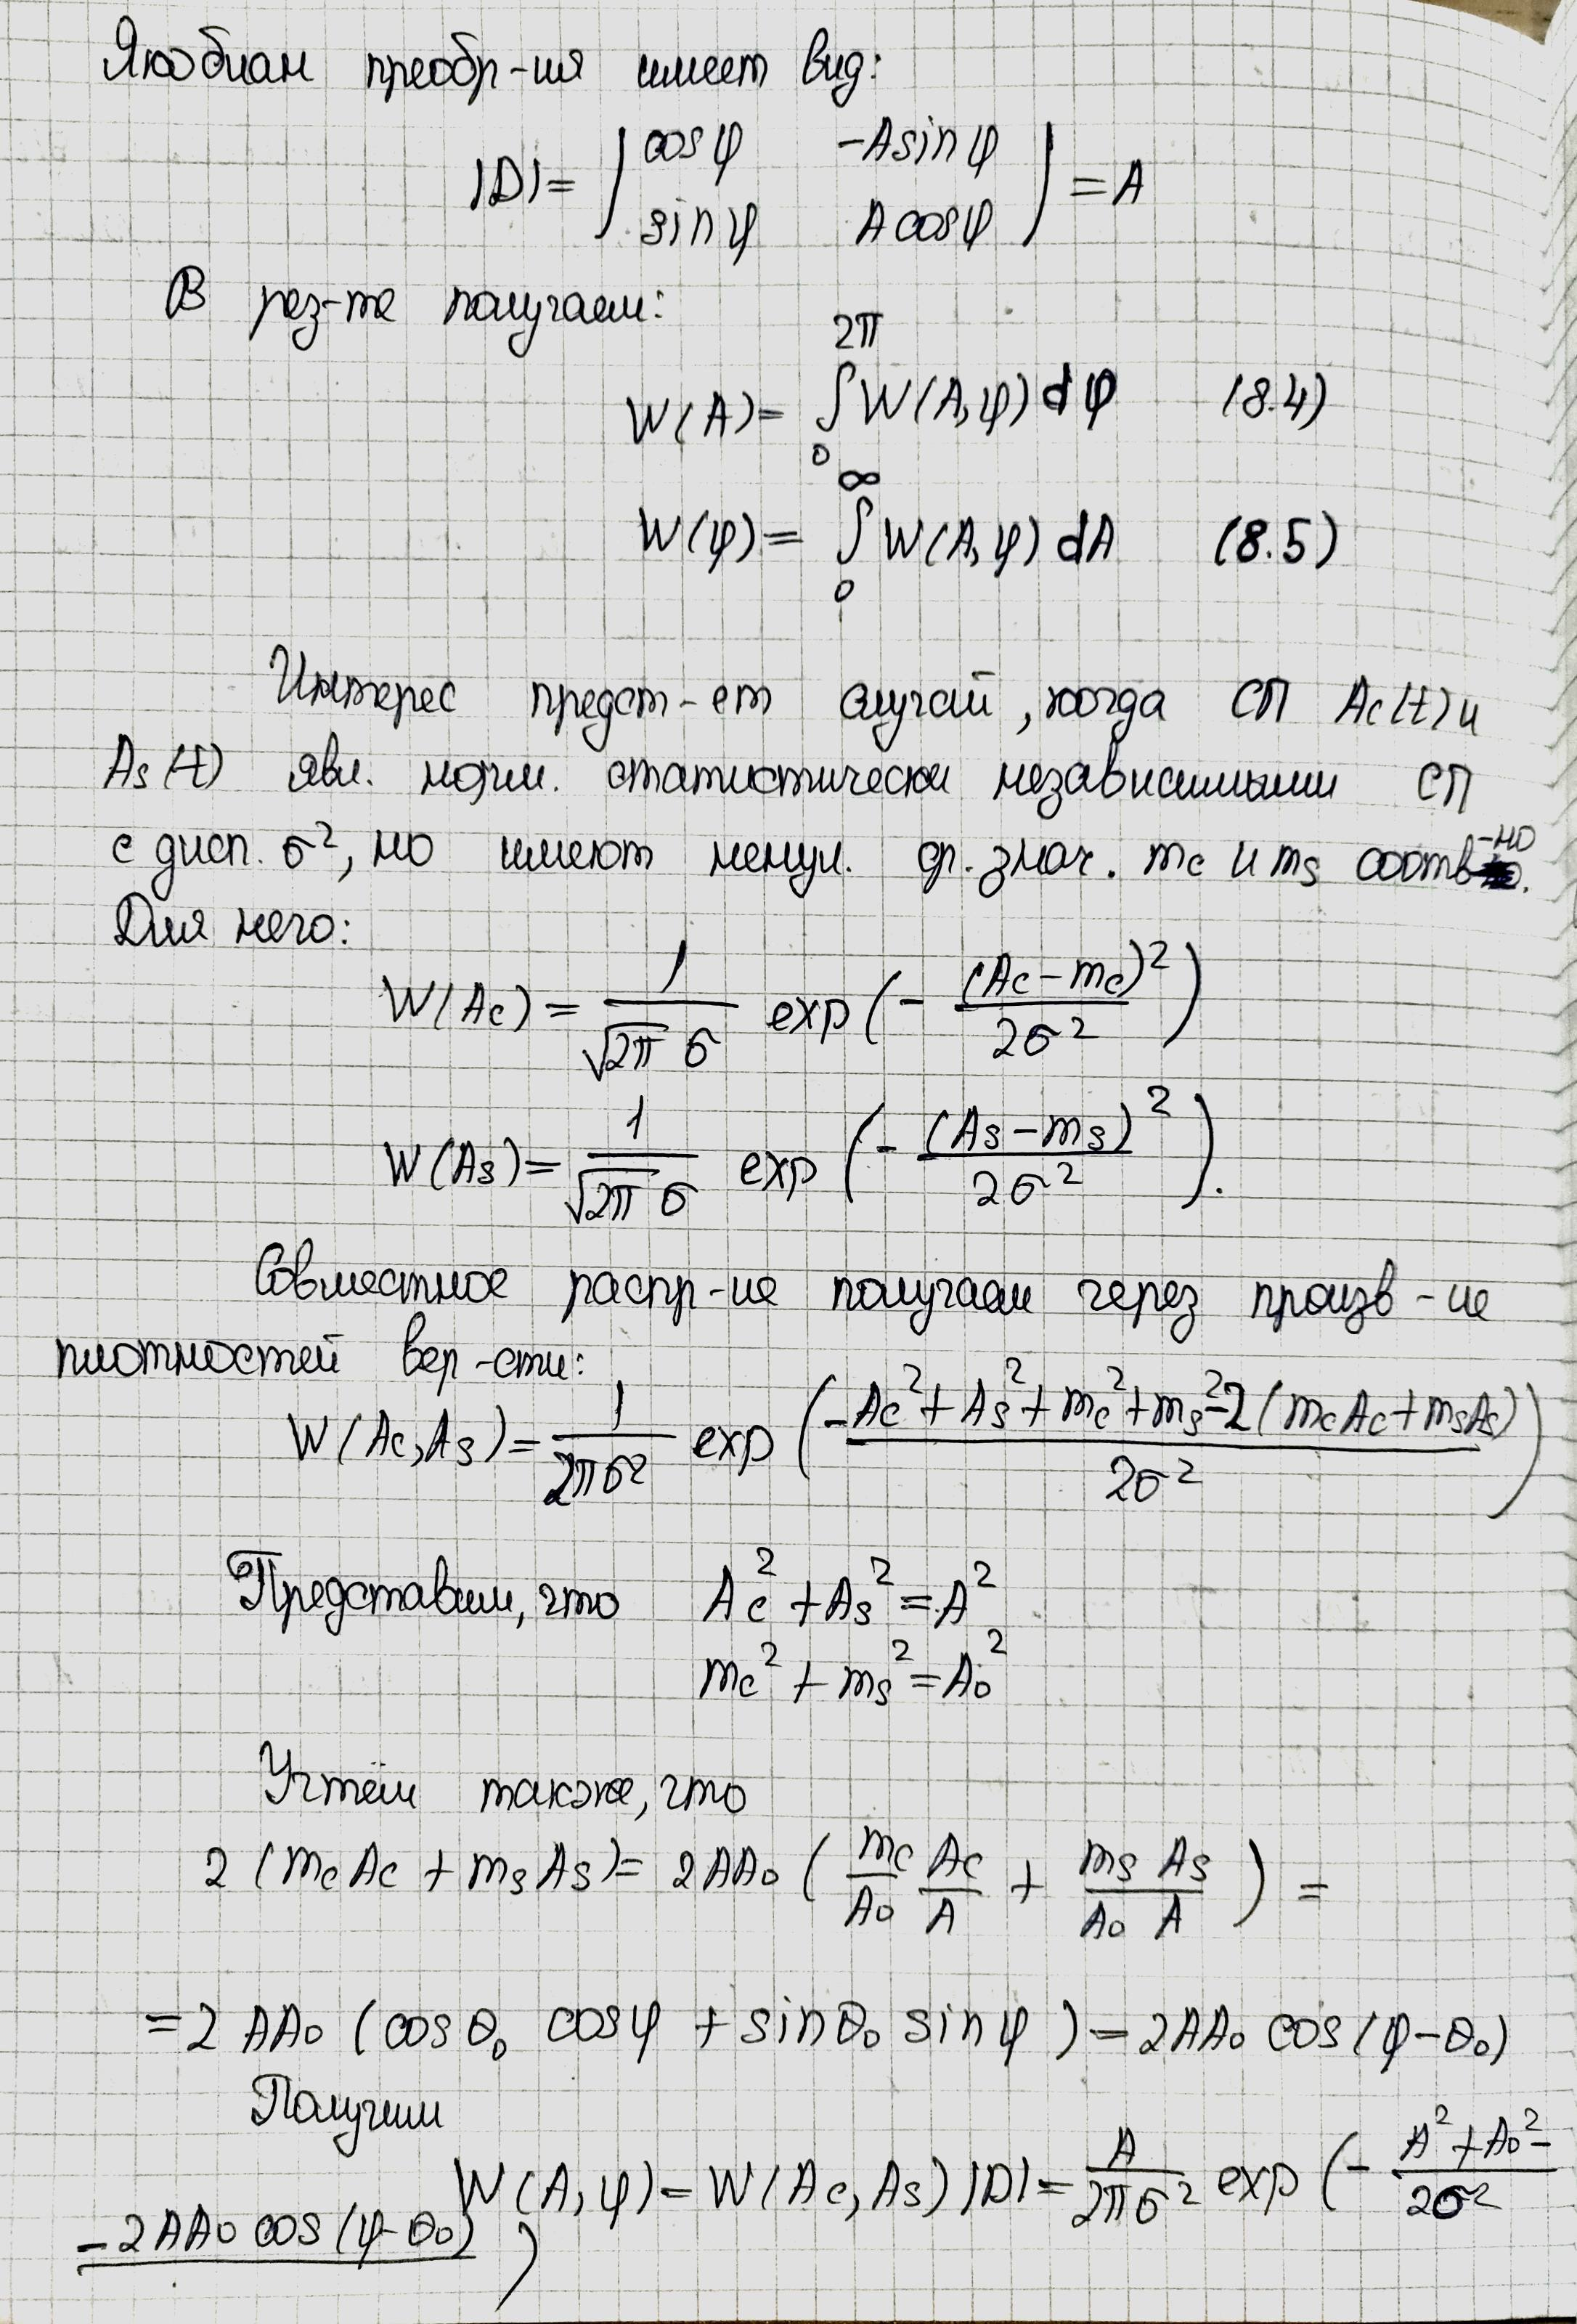 Якобиан преобр-ия имеет вид:
|D| = | cosφ   -Asinφ |
| sinφ   Acosφ | = A
В рез-те получаем:
W(A) = ∫₀^{2π} W(A,φ) dφ   (8.4)
W(φ) = ∫₀^∞ W(A,φ) dA   (8.5)
Интерес предст-ет случай, когда СП Ac(t) и
As(t) явл. норм. статистически независимыми СП
с дисп. σ², но имеют ненул. ср. знач. mc и ms соотв-но.
Для него:
W(Ac) = 1/(√2π σ) exp(- (Ac-mc)²/2σ²)
W(As) = 1/(√2π σ) exp(- (As-ms)²/2σ²).
Совместное распр-ие получаем через произв-ие
плотностей вер-сти:
W(Ac,As) = 1/2πσ² exp(- (Ac²+As²+mc²+ms²-2(mcAc+msAs))/2σ²)
Представим, что Ac²+As²=A²
mc²+ms²=A₀²
Учтём также, что
2(mcAc+msAs) = 2AA₀(mc/A₀ Ac/A + ms/A₀ As/A) =
= 2AA₀(cosθ₀ cosφ + sinθ₀ sinφ) = 2AA₀ cos(φ-θ₀)
Получим
W(A,φ) = W(Ac,As)|D| = A/2πσ² exp(- A²+A₀²-/2σ²
-2AA₀cos(φ-θ₀) )